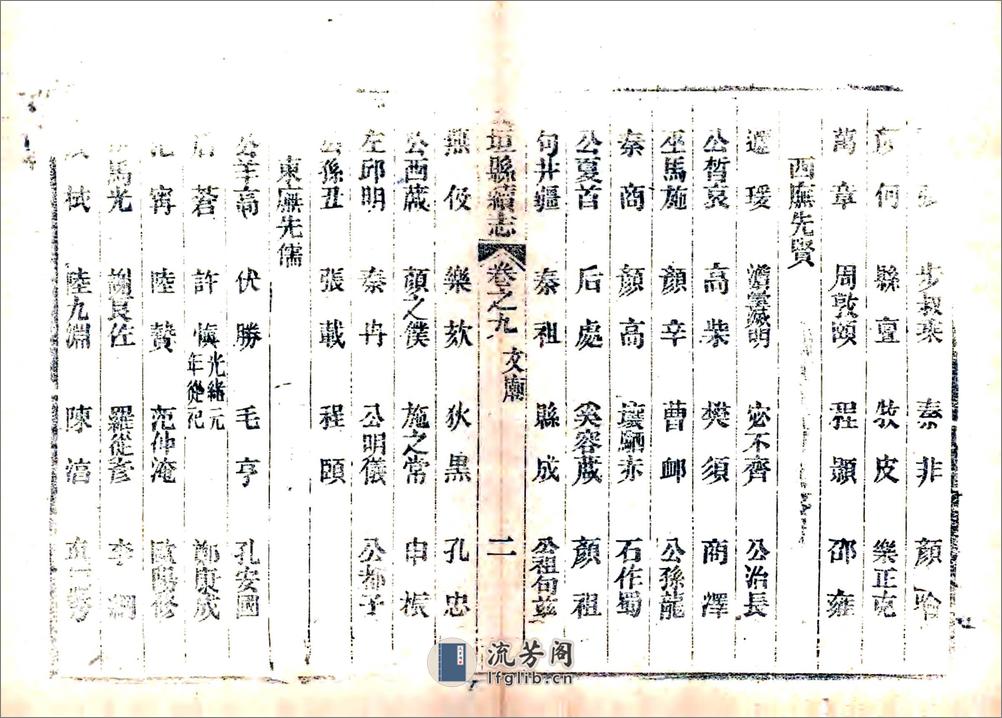 張 步叔乘 秦非 顏噲
顏何 縣亶 牧皮 樂正克
萬章 周敦頤 程顥 邵雍
西廡先賢
蘧瑗 澹臺滅明 宓不齊 公冶長
公晳哀 高柴 樊須 商澤
巫馬施 顏辛 曹卹 公孫龍
秦商 顏高 壤駟赤 石作蜀
公夏首 后處 奚容蒧 顏祖
句井疆 秦祖 縣成 公祖句兹
垣縣續志 卷之九 文廟 二
燕伋 樂欬 狄黑 孔忠
公西蒧 顏之僕 施之常 申棖
左邱明 秦冉 公明儀 公都子
公孫丑 張載 程頤
東廡先儒
公羊高 伏勝 毛亨 孔安國
后蒼 許慎 光緒元年從祀 鄭康成
范甯 陸贄 范仲淹 歐陽修
司馬光 謝良佐 羅從彥 李綱
張栻 陸九淵 陳淳 真德秀
流芳阁
lfglib.cn